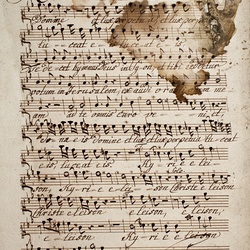 Domine et lux perpetua et lux perpe
luceat e is,
Te decet hymnus Deus in Syon et tibi reddetur
votum in Jerusalem, ex audi o ra em me
am, ad te omnis caro ve ni et,
na e is Domine et lux perpetua luceat
e is, luceat e is. Ky ri e e lei
son, Ky ri e e lei son Christe eleison
Christe eleison e leison, e leison,
e leison, Ky ri e e